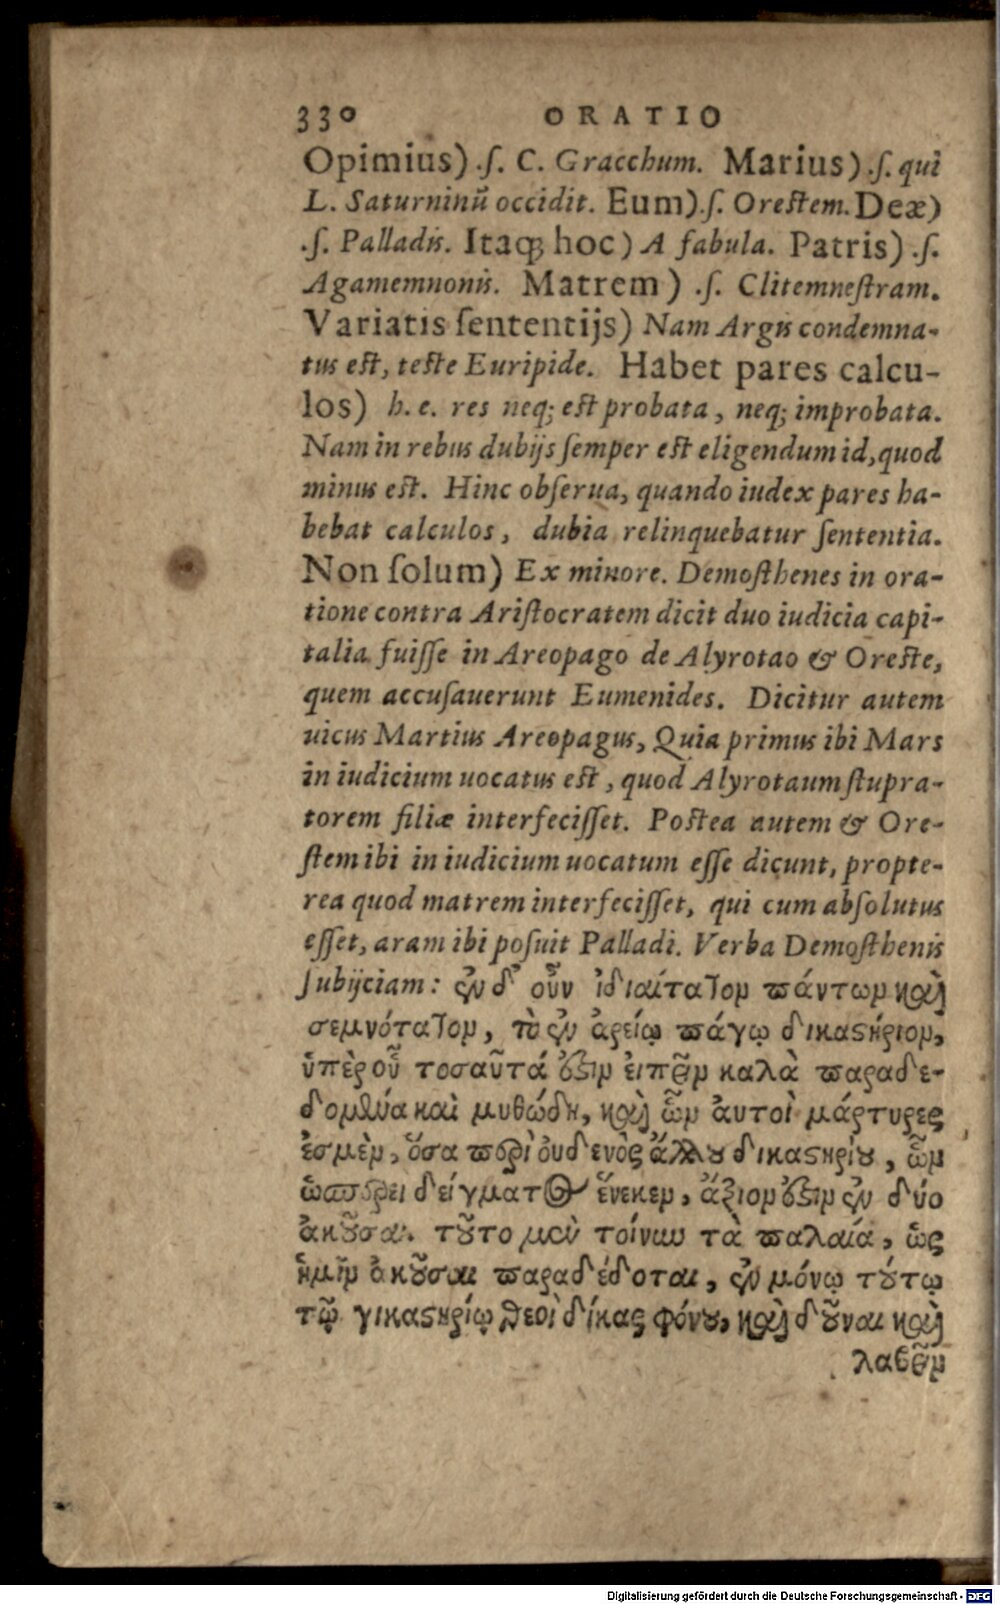 330 ORATIO
Opimius) .ſ. C. Gracchum. Marius) .ſ. qui
L. Saturninū occidit. Eum).ſ. Orestem. Deæ)
.ſ. Palladis. Itaq; hoc) A fabula. Patris) .ſ.
Agamemnonis. Matrem) .ſ. Clitemneſtram.
Variatis ſententijs) Nam Argis condemna-
tus est, teste Euripide. Habet pares calcu-
los) h. e. res neq; est probata, neq; improbata.
Nam in rebus dubijs ſemper est eligendum id, quod
minus est. Hinc obſerua, quando iudex pares ha-
bebat calculos, dubia relinquebatur ſententia.
Non ſolum) Ex minore. Demoſthenes in ora-
tione contra Ariſtocratem dicit duo iudicia capi-
talia fuiſſe in Areopago de Alyrotao & Oreste,
quem accuſauerunt Eumenides. Dicitur autem
uicus Martius Areopagus, Quia primus ibi Mars
in iudicium uocatus est, quod Alyrotaum ſtupra-
torem filiæ interfeciſſet. Postea autem & Ore-
ſtem ibi in iudicium uocatum eſſe dicunt, propte-
rea quod matrem interfeciſſet, qui cum abſolutus
eſſet, aram ibi poſuit Palladi. Verba Demoſthenis
ſubijciam: ἐν δ' οὖν ἰδιαίτατον πάντων καὶ
σεμνότατον, τὸ ἐν ἀρείῳ πάγῳ δικαστήριον,
ὑπὲρ οὗ τοσαῦτά ἐστιν ἐιπεῖν καλὰ παραδε-
δομένα καὶ μυθώδη, καὶ ὧν ἀυτοὶ μάρτυρες
ἐσμὲν, ὅσα περὶ ὀυδενὸς ἄλλου δικαστηρίου, ὧν
ὡσπερεὶ δείγματος ἕνεκεν, ἄξιον ἐστιν ἐν δύο
ἀκοῦσαι. τοῦτο μὲν τοίνυν τὰ παλαιά, ὡς
ἡμῖν ἀκοῦσαι παραδέδοται, ἐν μόνῳ τούτῳ
τῷ γικαστηρίῳ θεοὶ δίκας φόνου, καὶ δοῦναι καὶ
λαβεῖν
Digitalisierung gefördert durch die Deutsche Forschungsgemeinschaft - DFG